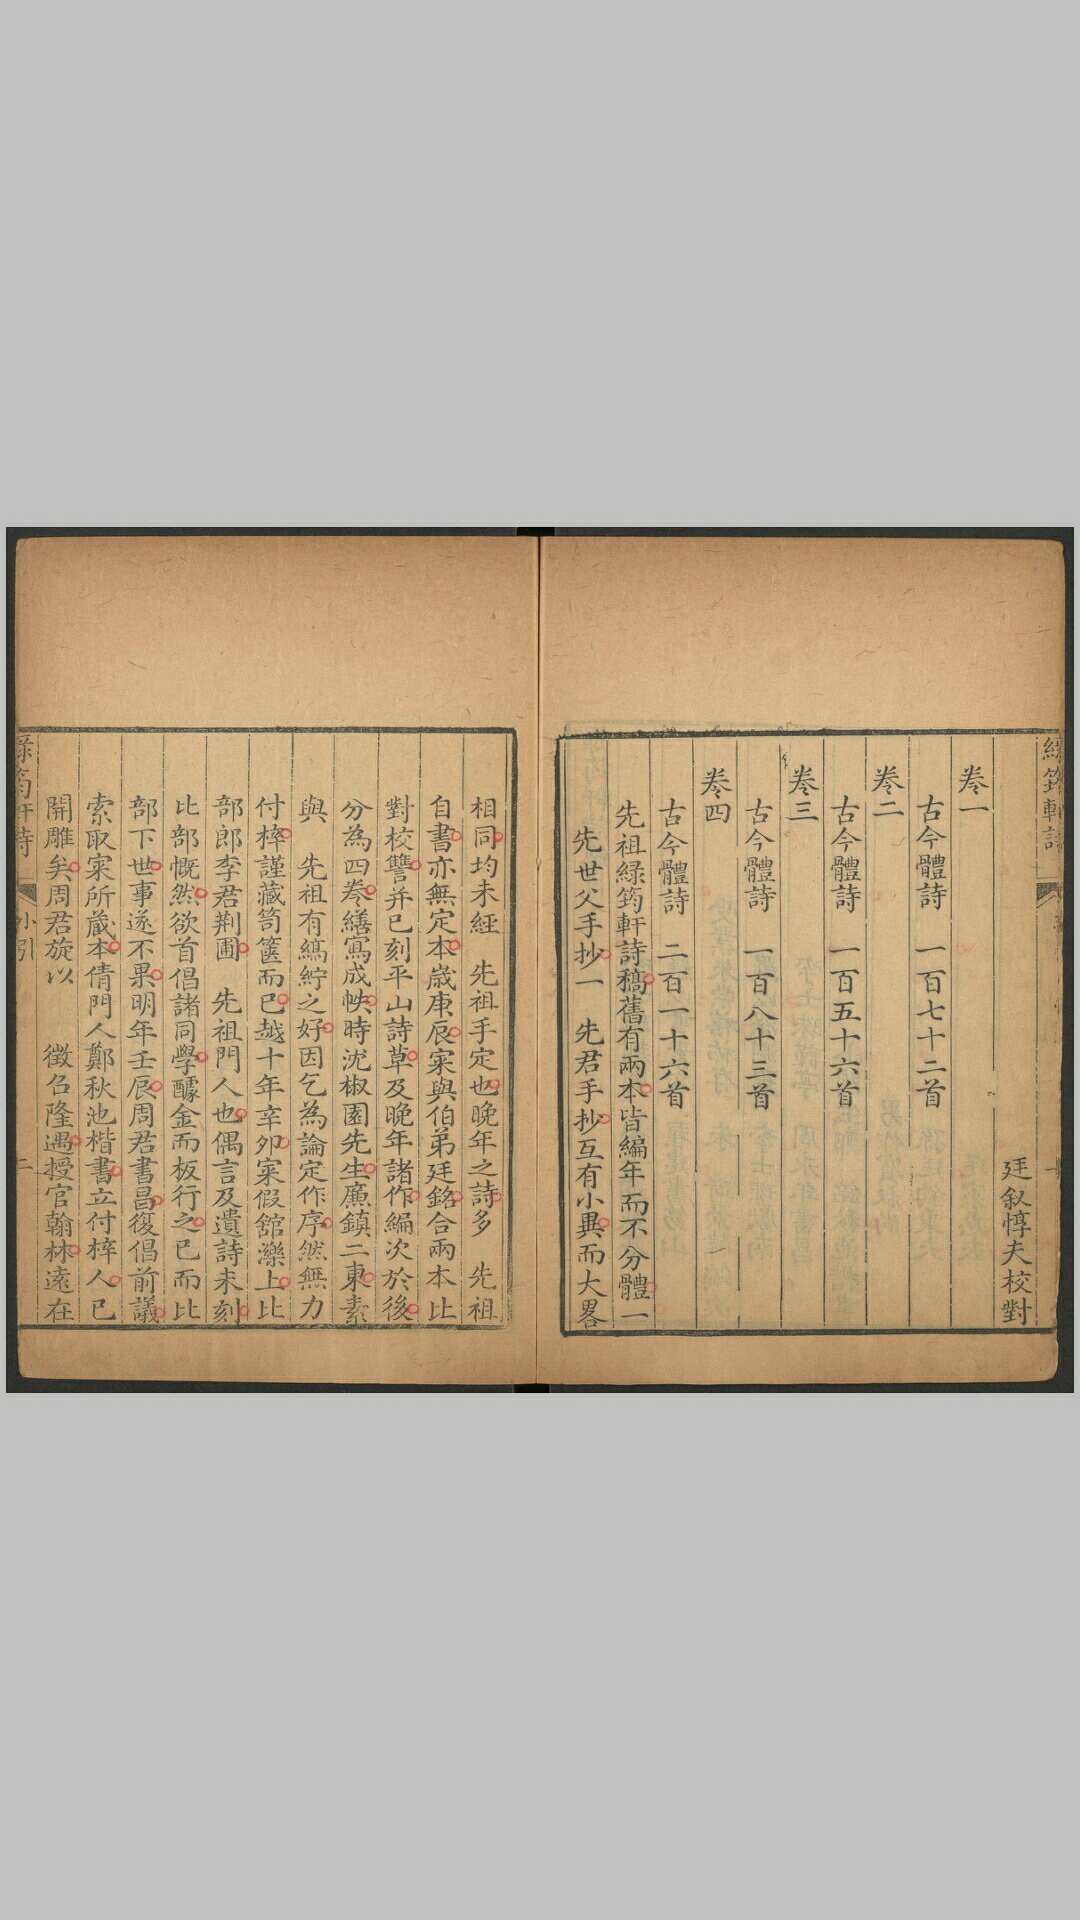 綠筠軒詩
廷叙惇夫校對
卷一
古今體詩 一百七十二首
卷二
古今體詩 一百五十六首
卷三
古今體詩 一百八十三首
卷四
古今體詩 二百一十六首
先祖綠筠軒詩稿舊有兩本皆編年而不分體一
先世父手抄一 先君手抄互有小異而大畧
相同均未經 先祖手定也晚年之詩多 先祖
自書亦無定本歲庚辰寀與伯弟廷銘合兩本比
對校讐并已刻平山詩草及晚年諸作編次於後
分為四卷繕寫成帙時沈椒園先生廉鎮二東素
與 先祖有縞紵之好因乞為論定作序然無力
付梓謹藏笥篋而已越十年辛卯寀假舘濼上比
部郎李君荆圃 先祖門人也偶言及遺詩未刻
比部慨然欲首倡諸同學醵金而板行之已而比
部下世事遂不果明年壬辰周君書昌復倡前議
索取寀所蔵本倩門人鄭秋池楷書立付梓人已
開雕矣周君旋以 徵召隆遇授官翰林遠在
綠筠軒詩 小引 二